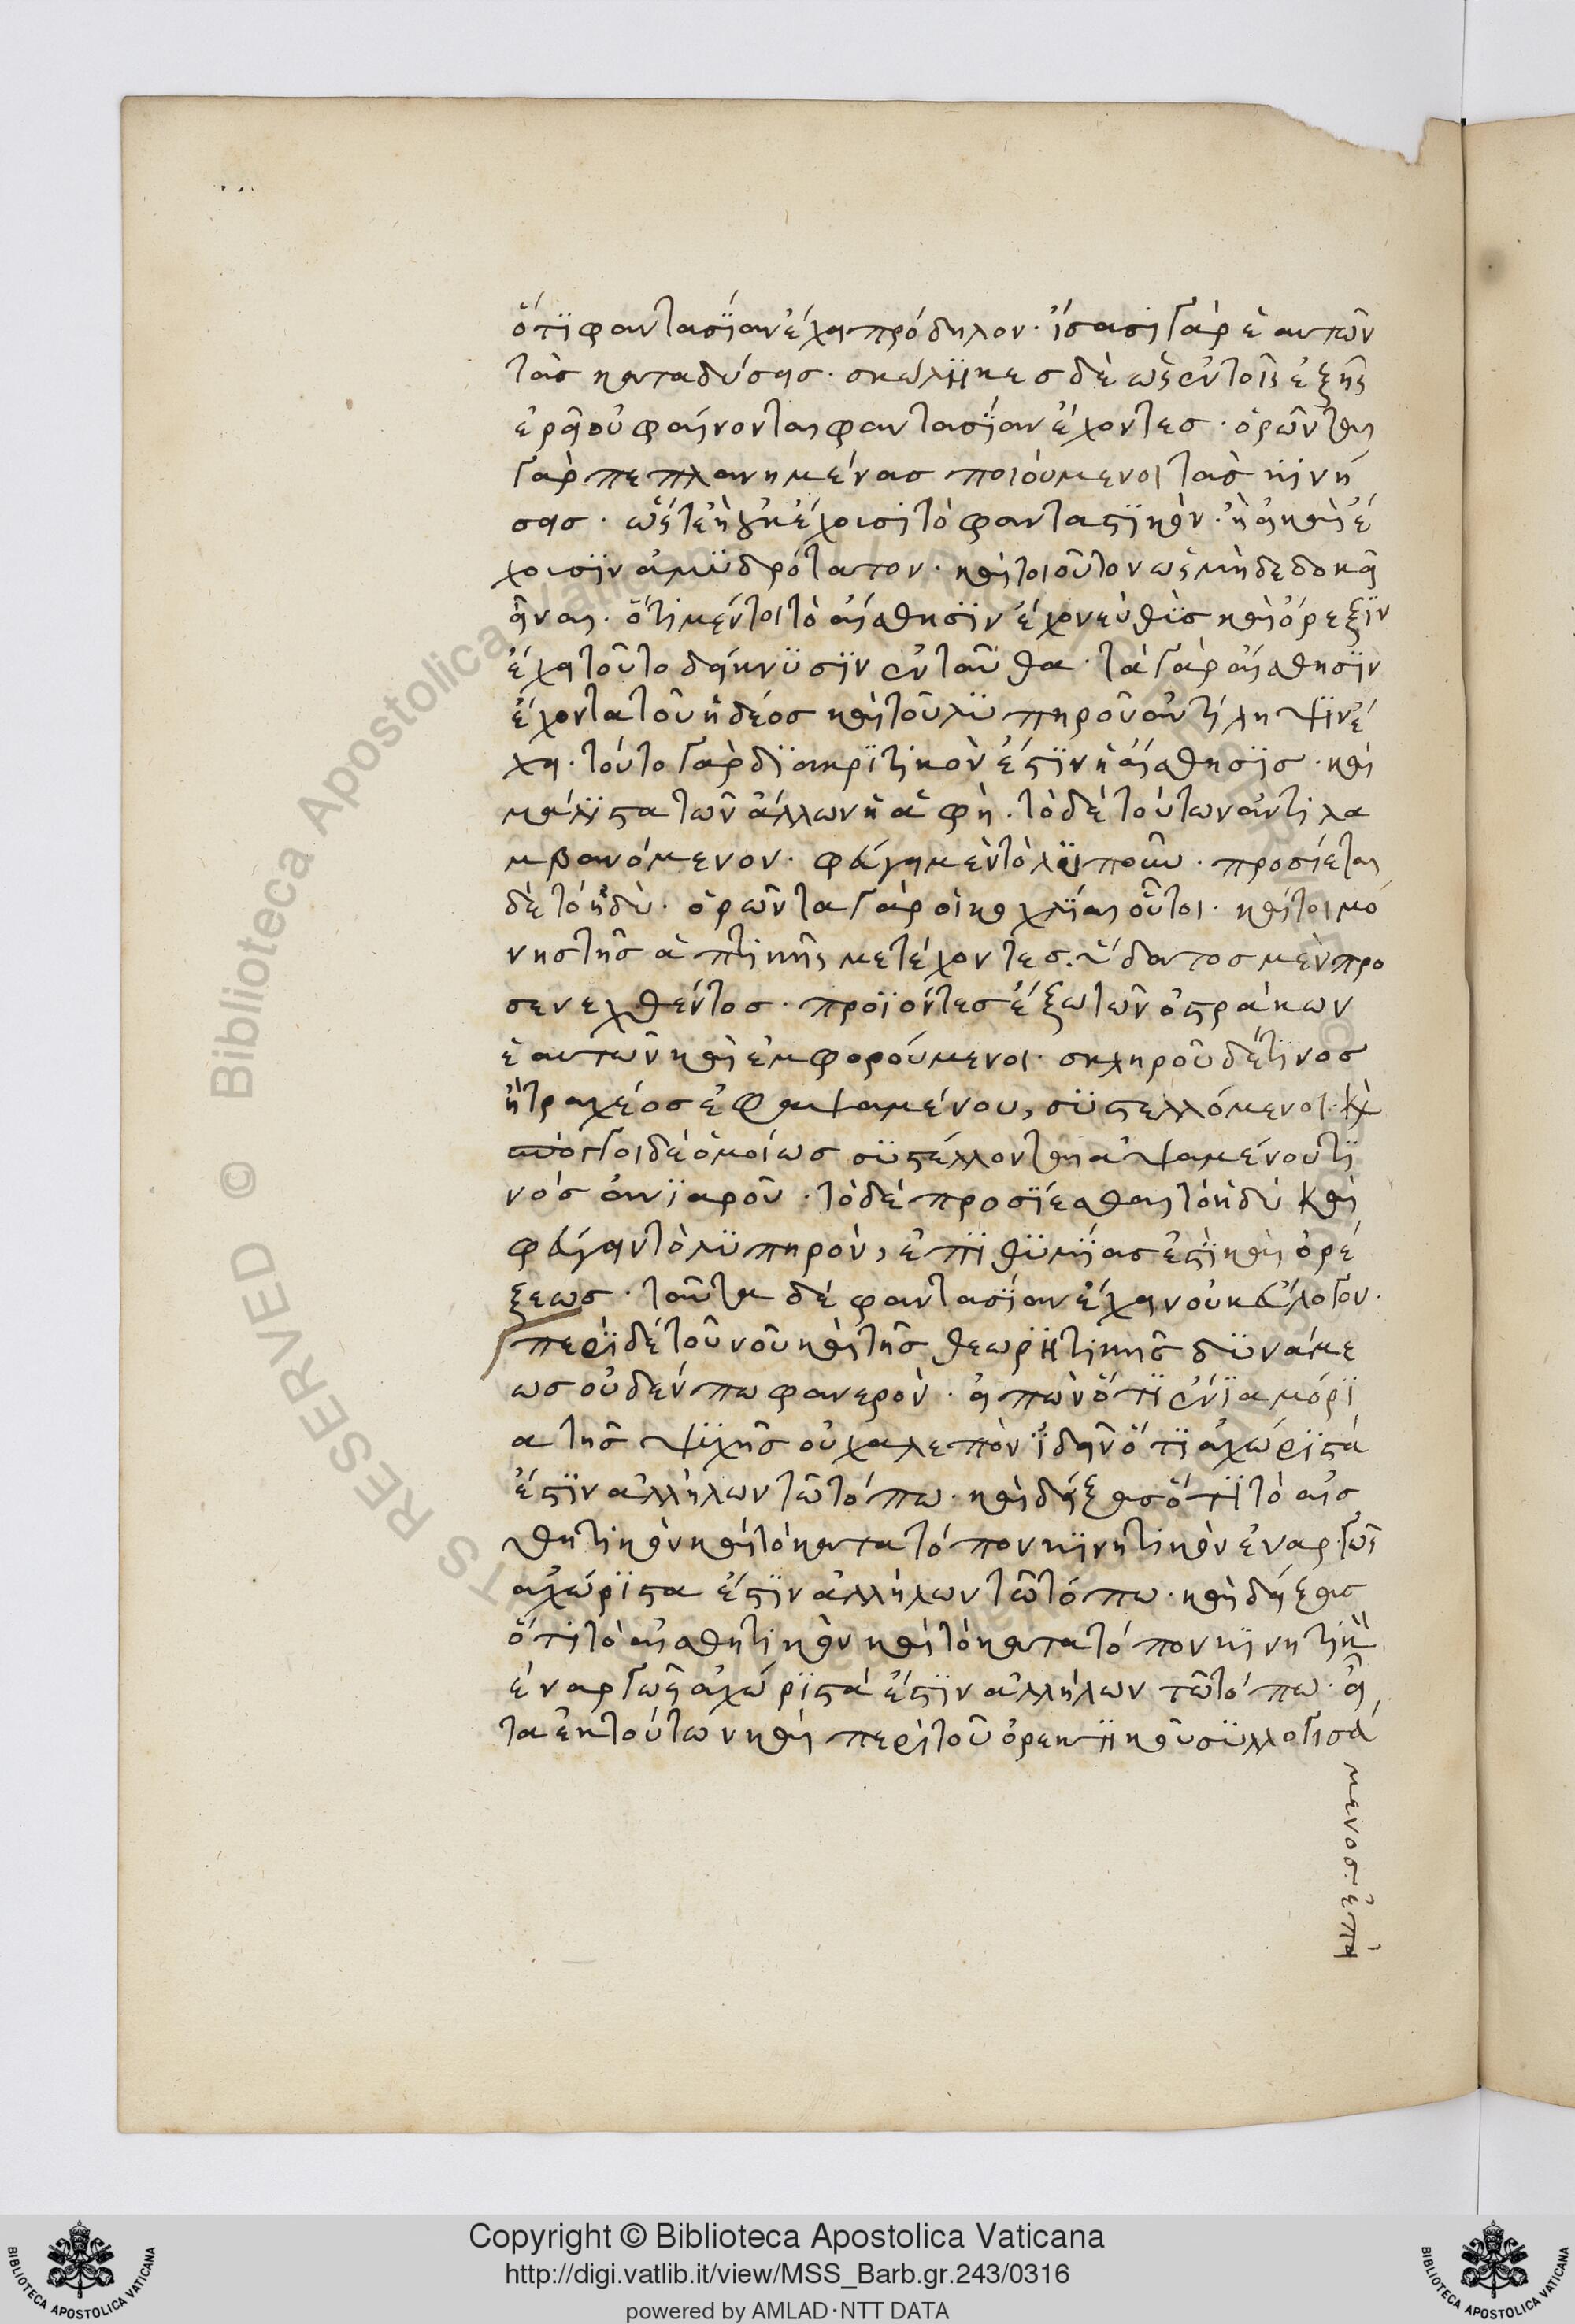 ὅτι φαντασίαν ἔχει πρόδηλον· ἴσασι γὰρ ἑαυτῶν
τὰς καταδύσεις· σκώληκες δὲ ὡς ἐν τοῖς ἑξῆς
ἐρεῖ οὐ φαίνονται φαντασίαν ἔχοντες· ὁρῶνται
γὰρ πεπλανημένας ποιούμενοι τὰς κινή
σεις· ὥστε ἢ οὐκ ἔχουσι τὸ φανταστικὸν· ἢ εἰ καὶ ἔ
χουσιν ἀμυδρότατον· καὶ τοιοῦτον ὡς μὴ δὲ δοκεῖ
εἶναι· ὅτι μέντοι τὸ αἴσθησιν ἔχον εὐθὺς καὶ ὄρεξιν
ἔχει τοῦτο δείκνυσιν ἐνταῦθα· τὰ γὰρ αἴσθησιν
ἔχοντα τοῦ ἡδέος καὶ τοῦ λυπηροῦ ἀντίληψιν ἔ
χει· τούτο γὰρ διακριτικὸν ἐστιν ἡ αἴσθησις· καὶ
μάλιστα τῶν ἄλλων ἡ ἁφὴ· τὸ δὲ τούτων ἀντιλα
μβανόμενον· φεύγει μὲν τὸ λυποῦν· προσίεται
δὲ τὸ ἡδὺ· ὁρῶνται γὰρ οἱ κοχλίαι οὗτοι· καίτοι μό
νης τῆς ἁπτικῆς μετέχοντες· ὕδατος μὲν προ
σενεχθέντος· προϊόντες ἔξω τῶν ὀστράκων
ἑαυτῶν καὶ ἐμφορούμενοι· σκληροῦ δέ τινος
ἢ τραχέος ἐφαψαμένου, συστελλόμενοι· καὶ
σπόγγοι δὲ ὁμοίως συστέλλονται ἁψαμένου τι
νός ἀνιαροῦ· τὸ δὲ προσίεσθαι τὸ ἡδὺ καὶ
φεύγειν τὸ λυπηρὸν, ἐπιθυμίας ἐστὶ καὶ ὀρέ
ξεως· ταῦτα δὲ φαντασίαν ἔχειν οὐκ εὔλογον·
περὶ δὲ τοῦ νοῦ καὶ τῆς θεωρητικῆς δυνάμε
ως οὐδέν πω φανερὸν· εἰπὼν ὅτι ἔνια μόρι
α τῆς ψυχῆς οὐ χαλεπὸν ἰδεῖν ὅτι ἀχώριστά
ἐστιν ἀλλήλων τῷ τόπῳ· καὶ δείξας ὅτι τὸ αἰσ
θητικὸν καὶ τὸ κατα τόπον κινητικὸν ἐναργῶς
ἀχώριστα ἐστιν ἀλλήλων τῷ τόπῳ· καὶ δείξας
ὅτι τὸ αἰσθητικὸν καὶ τὸ κατα τόπον κινητικὸν
ἐναργῶς ἀχώριστά ἐστιν ἀλλήλων τῷ τόπῳ· εἶ
τα ἐκ τούτων καὶ περὶ τοῦ ὀρεκτικοῦ συλλογισά
μενος· ἐπὶ
Copyright © Biblioteca Apostolica Vaticana
http://digi.vatlib.it/view/MSS_Barb.gr.243/0316
powered by AMLAD·NTT DATA